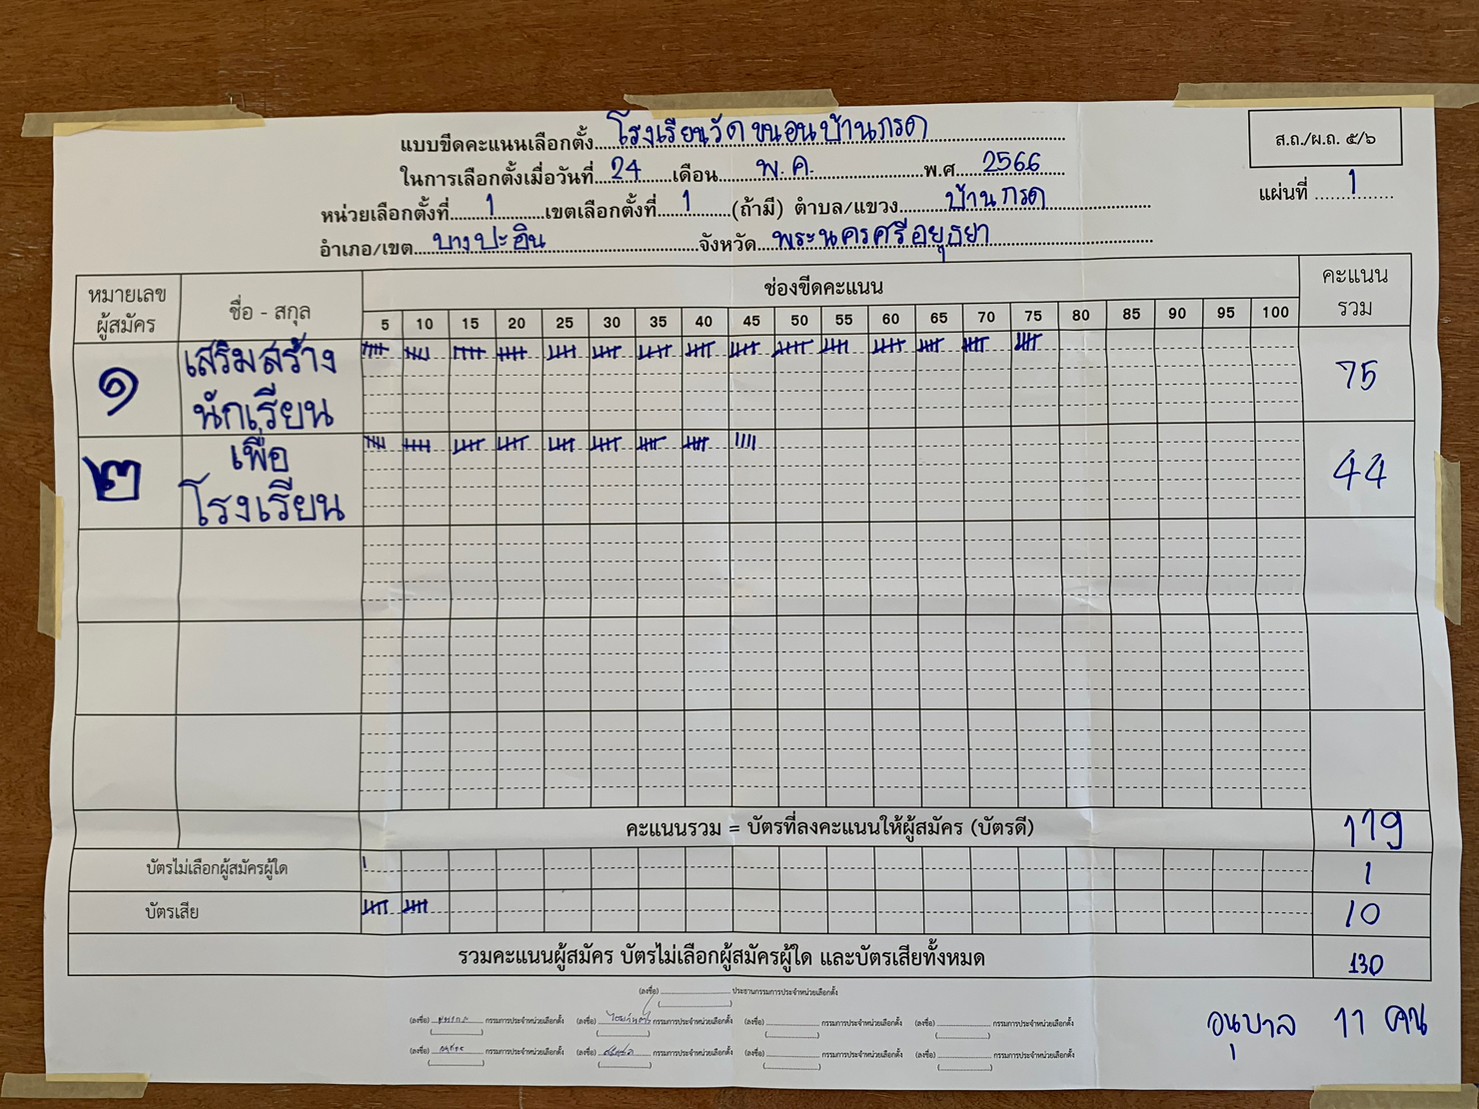 ส.ถ./ผ.ถ. ๕/๖
แบบขีดคะแนนเลือกตั้ง โรงเรียนวัดขนอนบ้านกรด
ในการเลือกตั้งเมื่อวันที่ 24 เดือน พ.ค. พ.ศ 2566
แผ่นที่ 1
หน่วยเลือกตั้งที่ 1 เขตเลือกตั้งที่ 1 (ถ้ามี) ตำบล/แขวง บ้านกรด
อำเภอ/เขต บางปะอิน จังหวัด พระนครศรีอยุธยา
หมายเลข ผู้สมัคร ชื่อ - สกุล ช่องขีดคะแนน คะแนน รวม
5 10 15 20 25 30 35 40 45 50 55 60 65 70 75 80 85 90 95 100
๑ เสริมสร้าง นักเรียน 75
๒ เพื่อ โรงเรียน 44
คะแนนรวม = บัตรที่ลงคะแนนให้ผู้สมัคร (บัตรดี) 119
บัตรไม่เลือกผู้สมัครผู้ใด 1
บัตรเสีย 10
รวมคะแนนผู้สมัคร บัตรไม่เลือกผู้สมัครผู้ใด และบัตรเสียทั้งหมด 130
(ลงชื่อ) ประธานกรรมการประจำหน่วยเลือกตั้ง
(ลงชื่อ) กรรมการประจำหน่วยเลือกตั้ง (ลงชื่อ) กรรมการประจำหน่วยเลือกตั้ง (ลงชื่อ) กรรมการประจำหน่วยเลือกตั้ง (ลงชื่อ) กรรมการประจำหน่วยเลือกตั้ง
(ลงชื่อ) กรรมการประจำหน่วยเลือกตั้ง (ลงชื่อ) กรรมการประจำหน่วยเลือกตั้ง (ลงชื่อ) กรรมการประจำหน่วยเลือกตั้ง (ลงชื่อ) กรรมการประจำหน่วยเลือกตั้ง
อนุบาล 11 คน